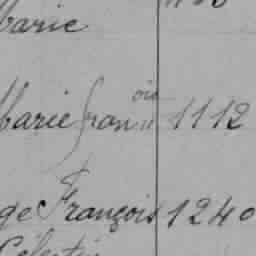 Marie
Marie fran^ois " 1112
ge François 1240
Célestin